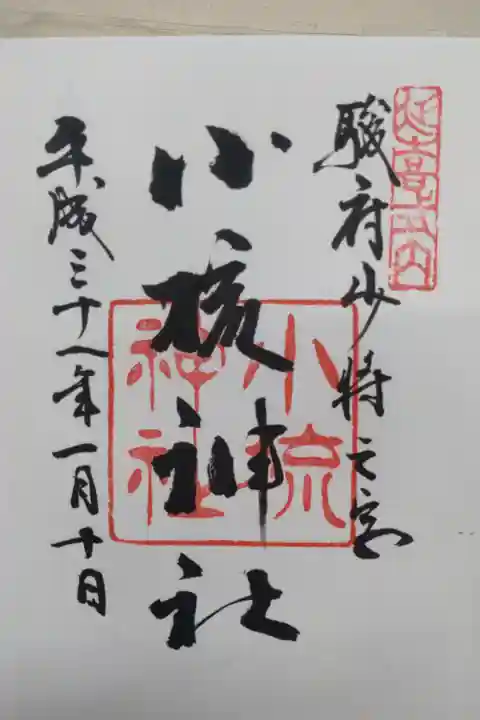 延喜式内
駿府少将之宮
小梳神社
小梳
神社
平成三十一年一月十日